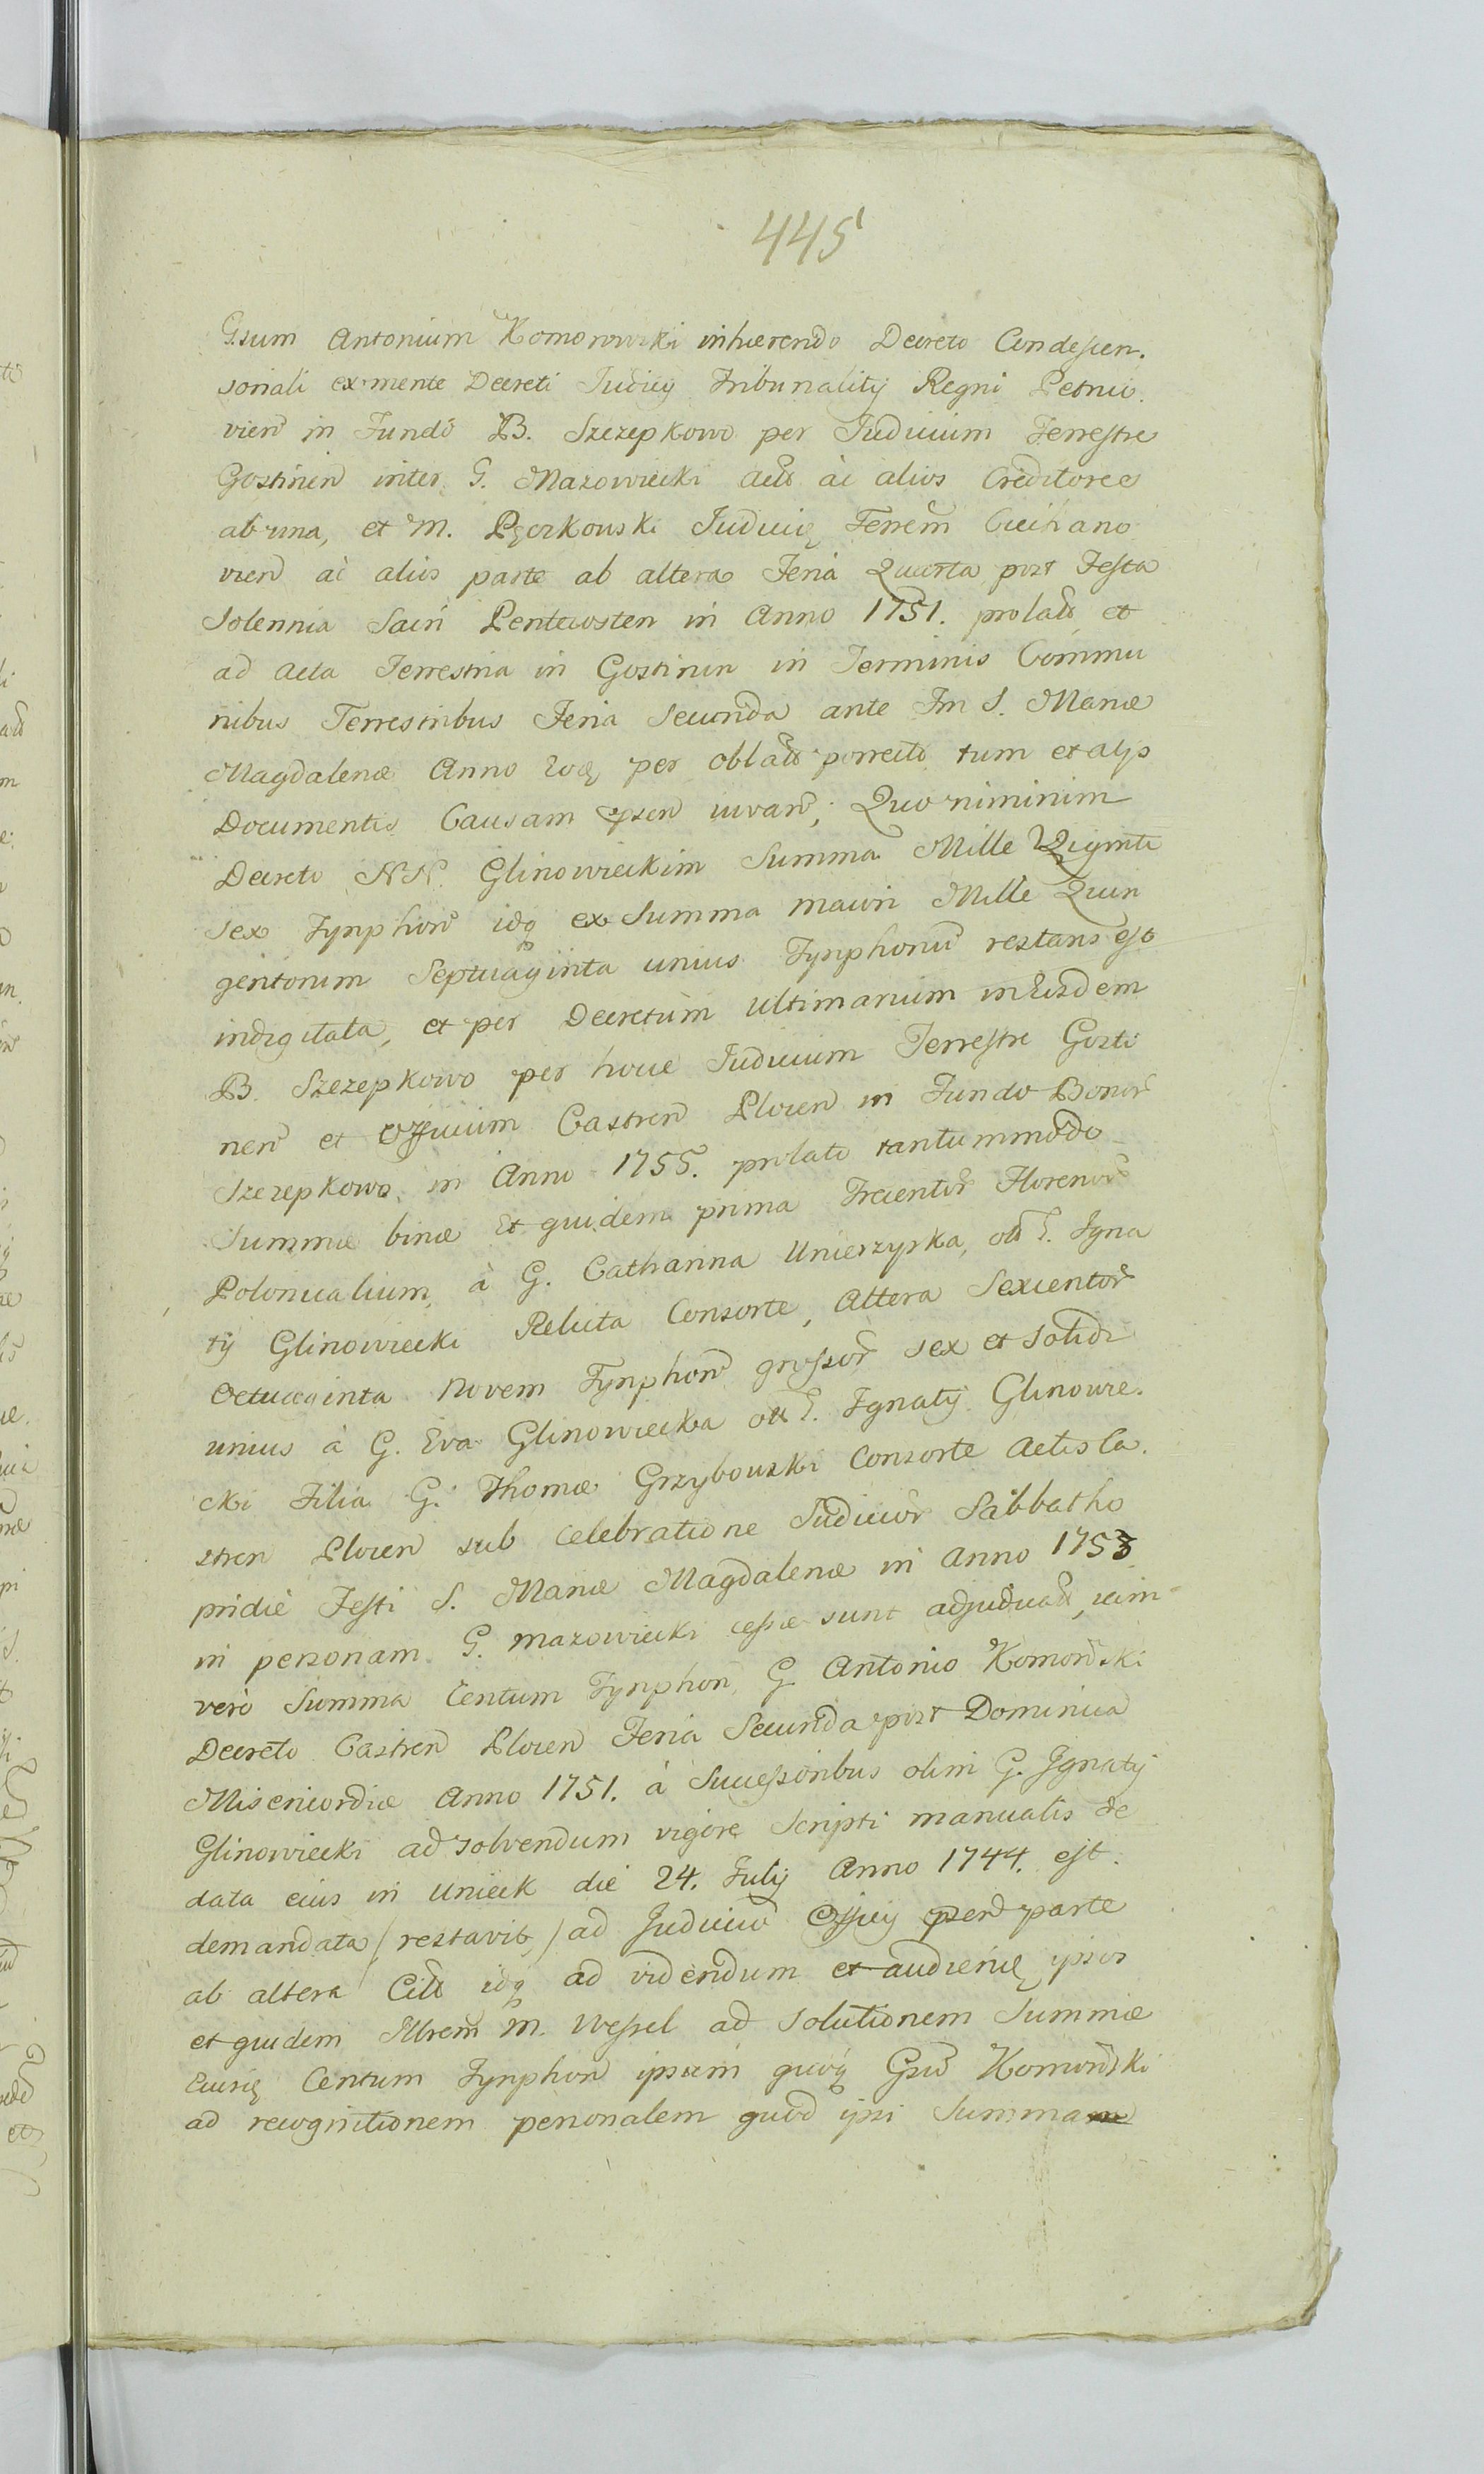 445
Gsum Antonium Komorowski inhærendo Decreto Condescen.
soriali ex mente Decreti Judicij Tribunalitij Regni Petrico.
vien in Fundo B. Szczepkowo per Judicium Terrestre
Gostinen inter G. Mazowiecki ac alios Creditores
ab una, et M. Judicem Terrem Ciechano
vien ac alios parte ab altera Feria Quarta post Festa
Solennia Sacri Pentecosten in Anno 1751. prolato et
ad Acta Terrestria in Gostinin in Terminis Commu
nibus Terrestribus Feria Secunda ante Fm S. Mariæ
Magdalenæ Anno eoq per oblatam porrecto tum et alijs
Documentis Causam psen iuvan; Quo niminim
Decreto NN. Glinowieckim Summa Mille Viginti
sex Tynphon idq ex Summa maiori Mille Quin
gentorum Septuaginta unius Tynphonu restans est
indigitata, et per Decretum ultimarium in Eisdem
B. Szczepkowo per hocce Judicium Terrestre Gosti
nen et Officium Castren Plocen in Fundo Bonor
Szczepkowo in Anno 1755. prolato tantummodo
Summæ binæ Et quidem prima Trecentor Florenor
Polonicalium, à G. Catharina Unierzyska, oll G. Igna
tij Glinowiecki Relicta Consorte, Altera Sexcentor
Octuaginta Novem Tynphon grossor sex et Solidi
unius à G. Eva Glinowiecka oll G. Ignatij Glinowie.
cki Filia G. Thomæ Grzybowski Consorte Actis Ca.
stren Plocen sub celebratione Judicior Sabbatho
pridie Festi S. Mariæ Magdalenæ in Anno 1753
in personam G. Mazowiecki cessæ sunt adjudicatæ, cum
vero Summa Centum Tynphon, G. Antonio Komorski
Decreto Castren Plocen Feria Secunda post Dominica
Misericordiæ Anno 1751. à Successoribus olim G. Ignatij
Glinowiecki ad solvendum vigore Scripti manualis de
data eius in Unieck die 24. Julij Anno 1744. est
demandata /restavit,/ ad Judiciu Officij psen parte
ab altera Citt idq ad videndum et audiend ipsos
et quidem Illrem M. Wessel ad Solutionem Summæ
Centum Tynphon ipsum quoq Gsu Komorski
ad recognitionem personalem quod ipsi Summam